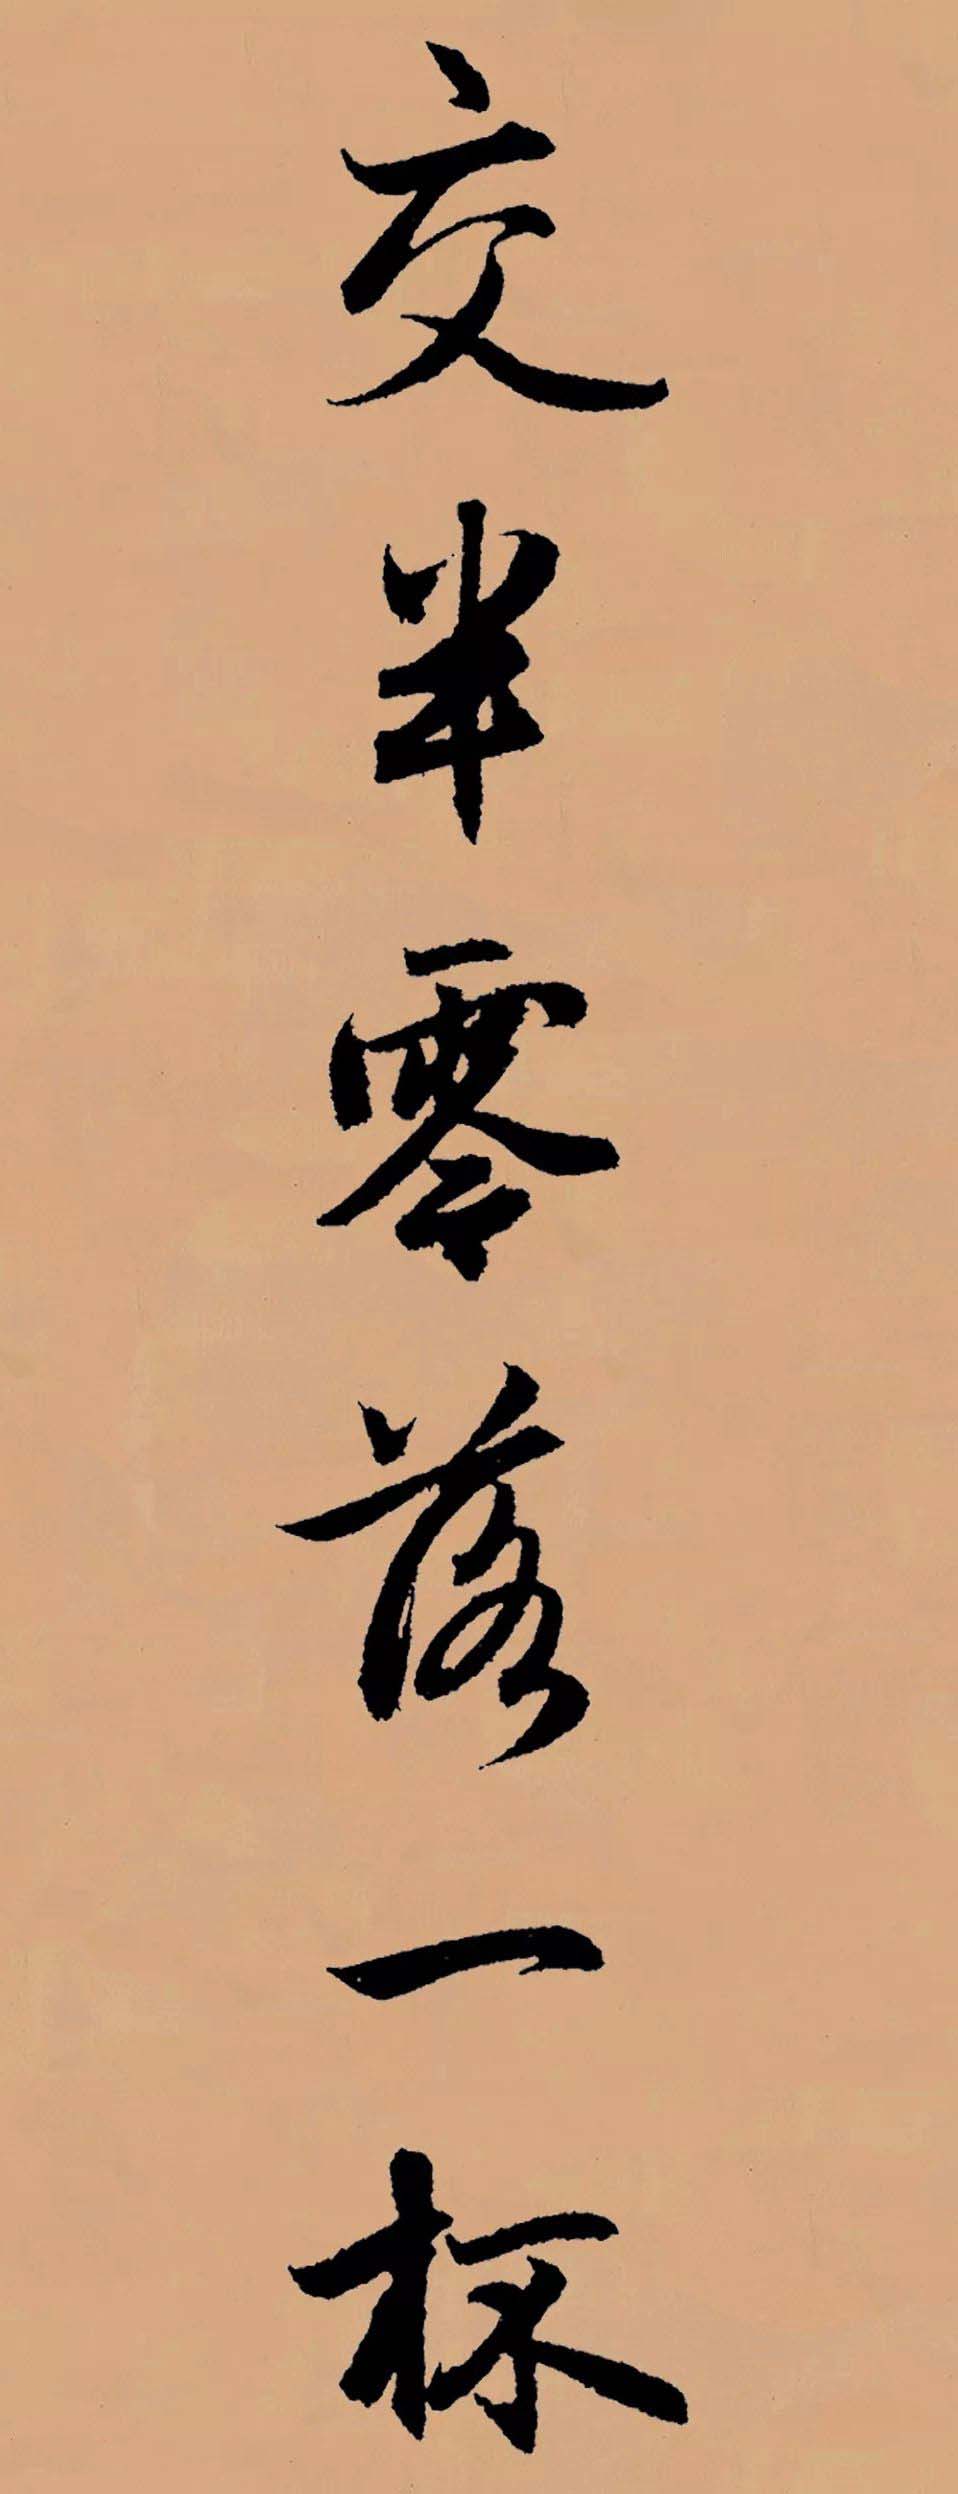 交半零落一杯